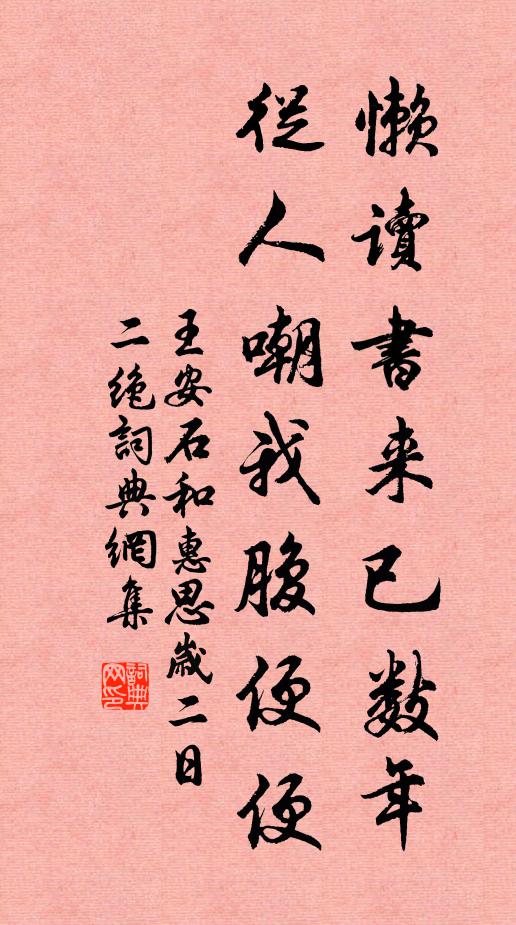 懶讀書来已数年
從人嘲我腹便便
王安石和惠思歲二日
二絶詞典網集
詞典
网印